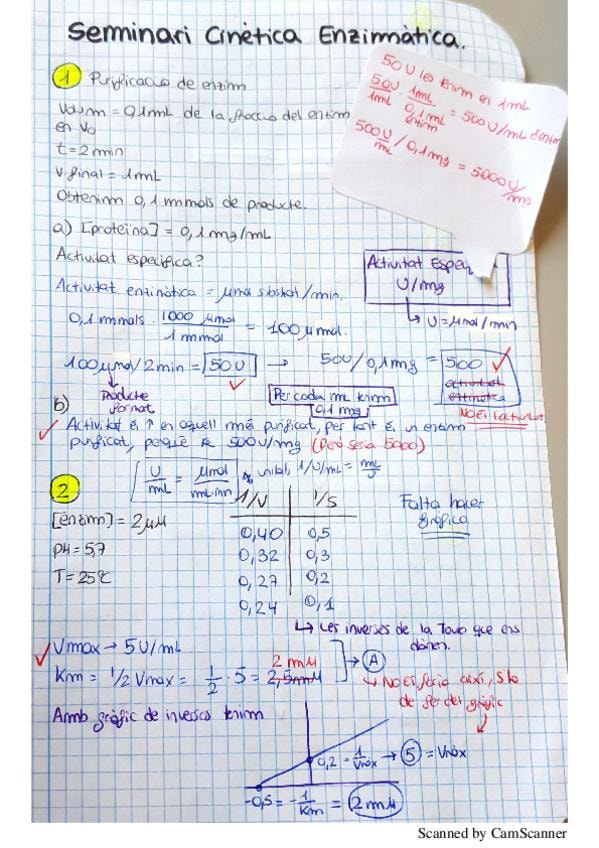 Seminari Cinètica Enzimàtica.
1 Purificació de enzim
Volum = 0,1mL de la fracció del enzim
en Vo
t = 2 min
V final = 1mL
Obtenim 0,1 mmols de producte.
50 U les tenim en 1mL
50U/1mL · 1mL/0,1mL enzim = 500U/mL d'enzim
500 U/mL / 0,1mg = 5000 U/mg
a) [proteina] = 0,1mg/mL
Activitat especifica?
Activitat Especi
U/mg
U = μmol/min
Activitat enzimàtica = μmol sbstrat/min.
0,1 mmols · 1000 μmol / 1 mmol = 100 μmol.
100 μmol/2min = 50U → 50U/0,1mg = 500
Producte format
Per cada mL tenim
0,1 mg
No és l'activitat
b)
Activitat és ↑ en aquell més purificat, per tant és un enzim
purificat, perquè té 500U/mg (Però seria 5000)
U/mL = μmol/mL·min
unitats 1/U/mL = mL/U
2
[enzim] = 2μM
pH = 5,7
T = 25ºC
1/V 1/S
0,40 0,5
0,32 0,3
0,27 0,2
0,24 0,1
Falta hacer
gráfico
↳ Les inverses de la Taula que ens
dónen.
Vmax → 5 U/mL
Km = 1/2 Vmax = 1/2 · 5 = 2,5mM 2 mM → A
↳ No es faria així, s'ha
de fer del gràfic
Amb gràfic de inverses tenim
0,2 = 1/Vmàx → 5 = Vmàx
-0,5 = -1/Km = 2mM
Scanned by CamScanner